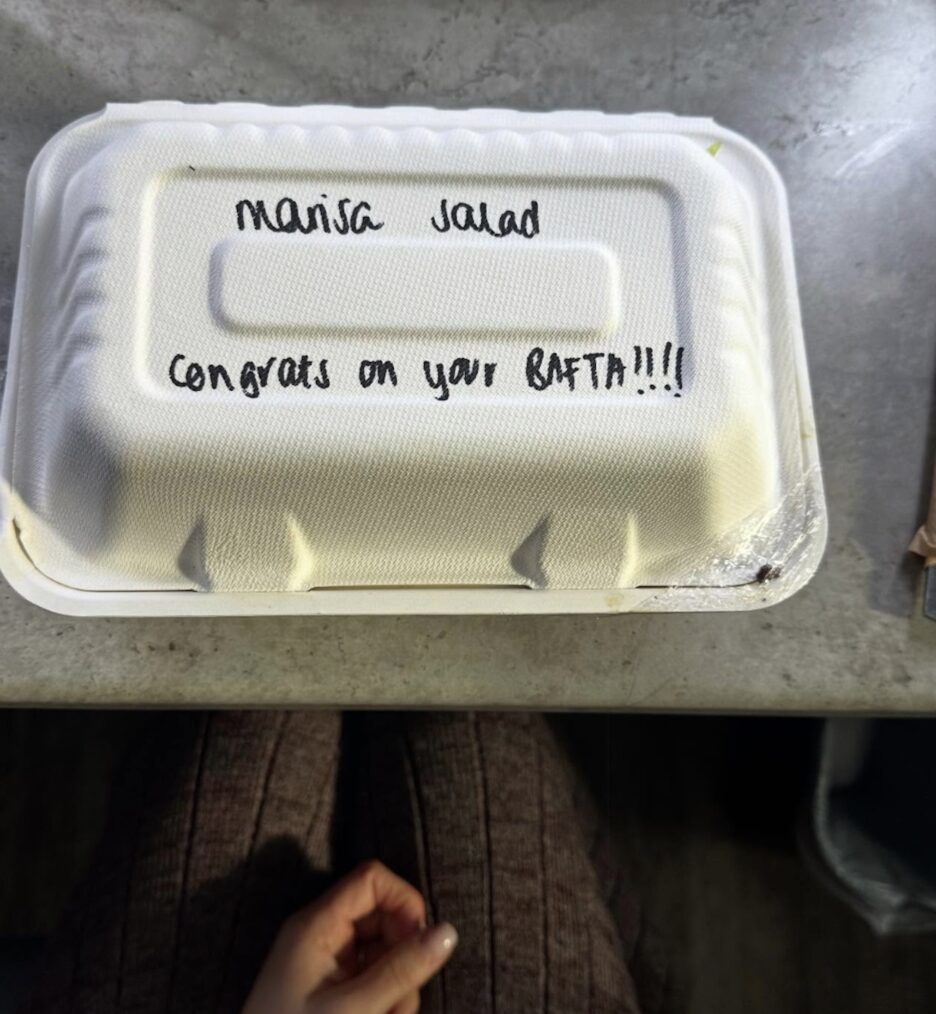 Marisa salad
Congrats on your BAFTA!!!!